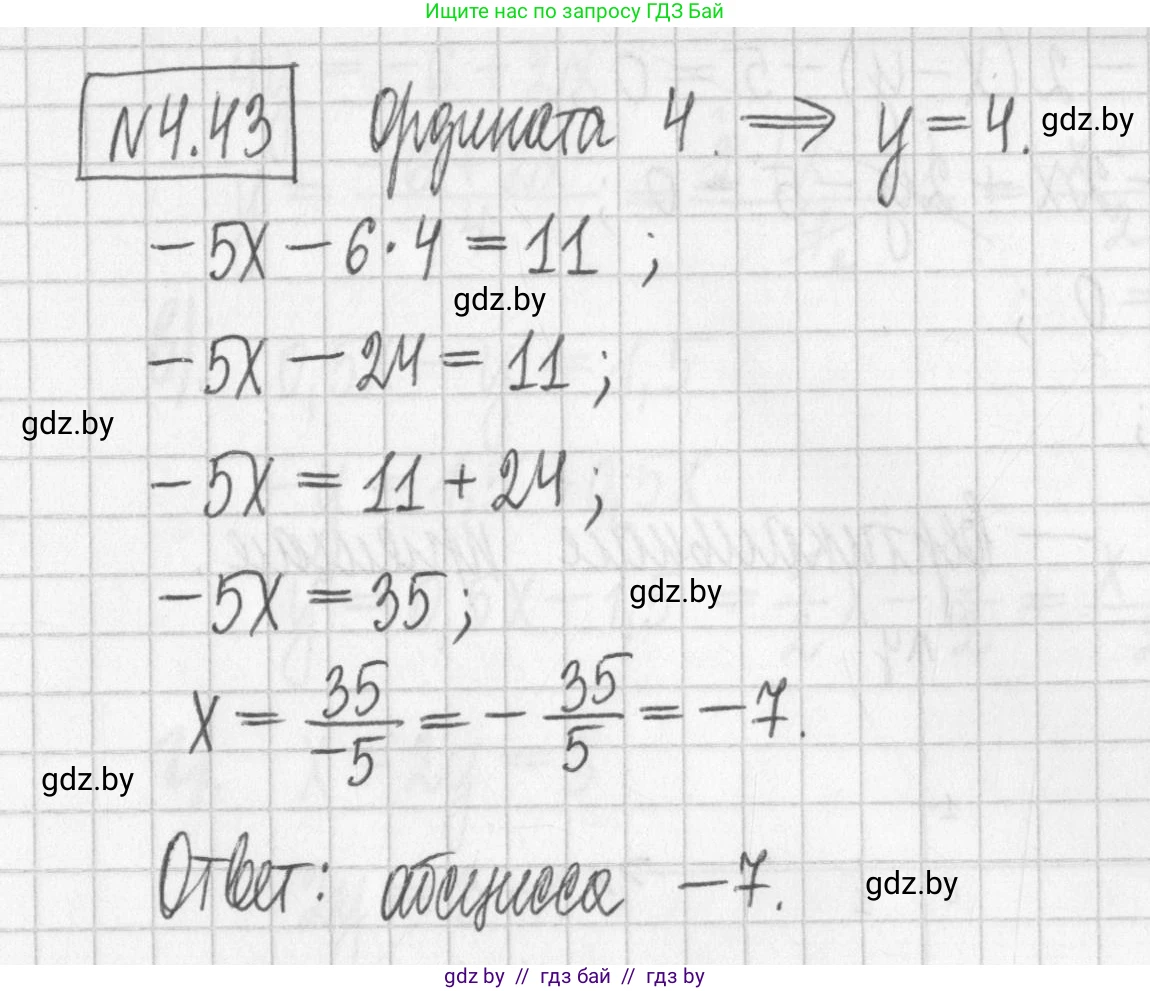 Ищите нас по запросу ГДЗ Бай
N4.43 Ордината 4. ⟹ y = 4. gdz.by
- 5x - 6·4 = 11 ;
gdz.by
- 5x - 24 = 11 ;
gdz.by
- 5x = 11 + 24 ;
- 5x = 35 ; gdz.by
x = 35/-5 = - 35/5 = - 7.
gdz.by
Ответ: абсцисса - 7. gdz.by
gdz by // гдз бай // гдз by